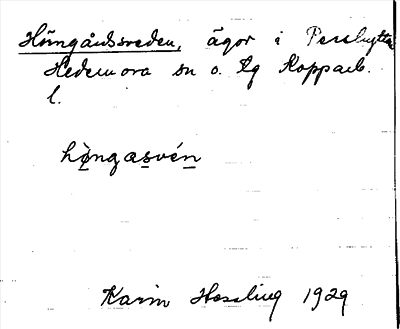 Hömgårdssveden, ägor i Pershyttan
Hedemora sn o. tg Kopparb.
l.
hö̀ngasvén
Karin Hessling 1929